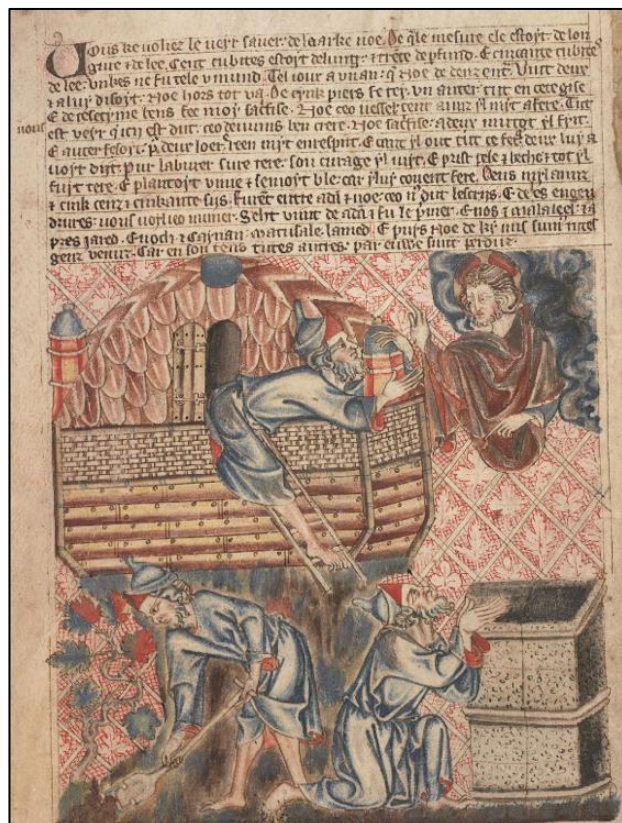 Vous ke volez le veyr saver: de la arke noe. De q̃le mesure ele estoyt: de lon
gure ⁊ de lee. Cent cubites estoyt de lung: ⁊ trẽte de p̃fund. E cincante cubite
de lee: unkes ne fu tele v mund. Tel iour a vn an: q̃ Noe de denz entᵃ. Vint deux
⁊ a luy disoyt: Noe hors tot va. De cynk piers fe tey: un auter tut en cete gise
E de me bens fee moy sacfise. Noe ceo vessel cent aunz yl myt a fere. Tut
nous
est veyr q̃ en est dut: ceo devums ben crere. Noe sacfise: a deux yl fyst.
E auter fesoyt: p̃ deux loer, reen myt en respit. E cant yl out tut ce fet: deux luy a
voyt dyt. Pur laburer sure tere: son curage yl myt. E prist pele ⁊ beche: ⁊ tot yl
fuyt tere. E plantoyt vine ⁊ semoyt ble: car yluy covent fere. Deus myl aunz
⁊ cink cenz ⁊ cinkante sys. Furẽt entre adã ⁊ noe: ceo nᵒ dyt lescris. E de les engen
drures: vous voyl en numer. Seht vint de adã: ⁊ fu le p̃mer. Enos ⁊ malaleel: ⁊ a
pres Jared. Enoch ⁊ Caynan: matusale, lamed. E puys Noe de ky nus sum
genz venuz. Car en son tens tutes autres: par ewe sunt perduz.